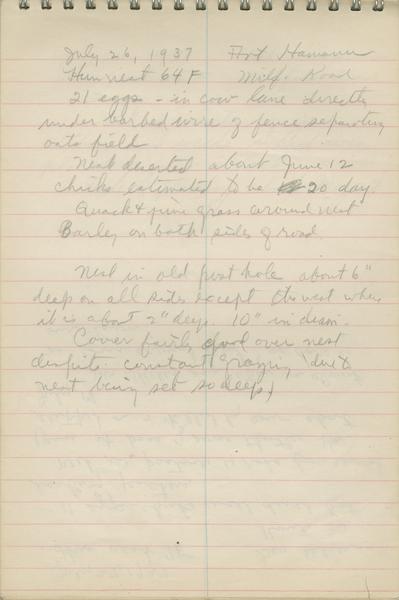 July 26, 1937 Art Hamann
Hun nest 64 F Milf. Road
21 eggs - in cow lane directly
under barbed wire of fence separating
oats field
Nest deserted about June 12
chicks estimated to be 20 day
Quack & June grass around nest
Barley on both sides of road
Nest in old post hole about 6"
deep on all sides except the west where
it is about 2" deep. 10" in diam.
Cover fairly good over nest
despite constant grazing (due to
nest being set so deep)